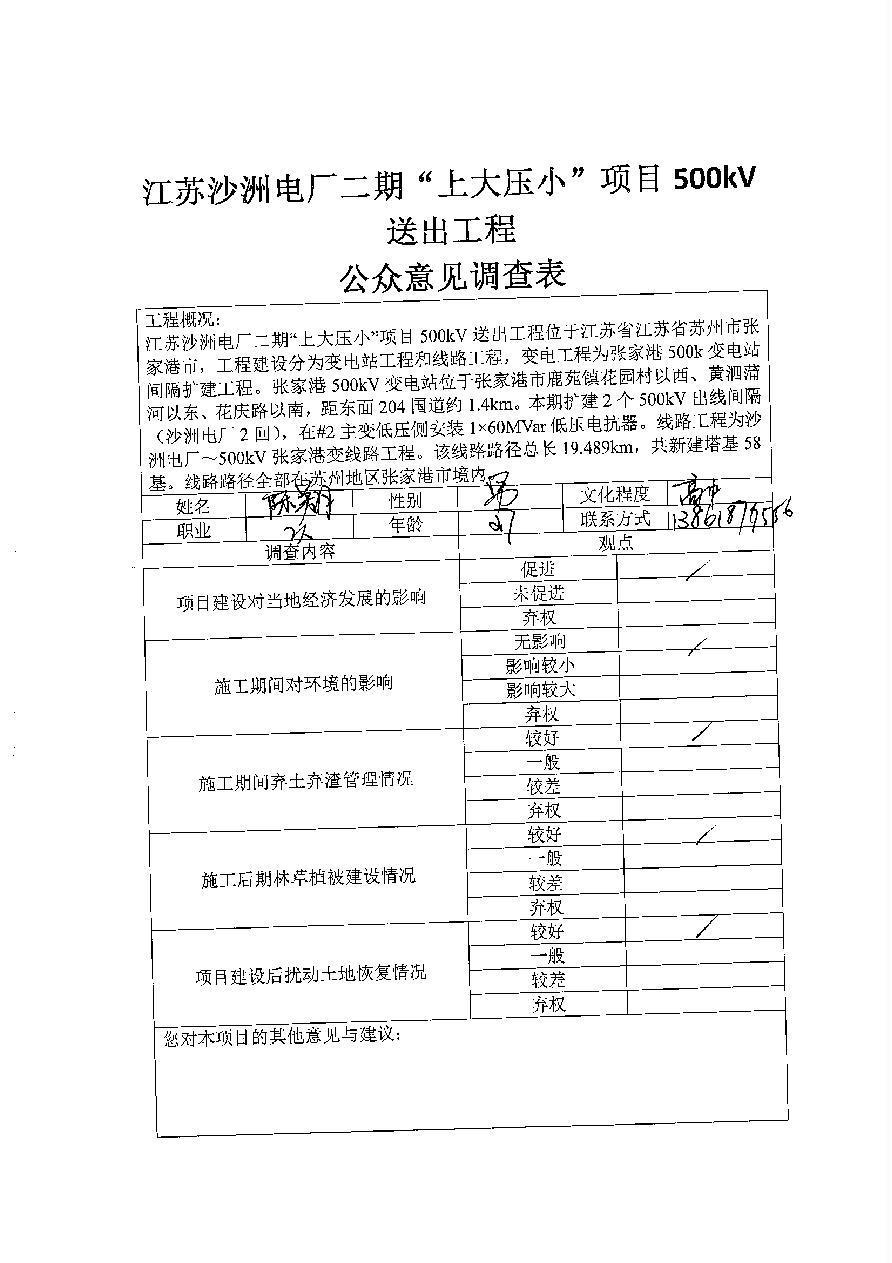 江苏沙洲电厂二期“上大压小”项目 500kV
送出工程
公众意见调查表
工程概况：
江苏沙洲电厂二期“上大压小”项目 500kV 送出工程位于江苏省江苏省苏州市张
家港市，工程建设分为变电站工程和线路工程，变电工程为张家港 500k 变电站
间隔扩建工程。张家港 500kV 变电站位于张家港市鹿苑镇花园村以西、黄泗蒲
河以东、花庆路以南，距东面 204 国道约 1.4km。本期扩建 2 个 500kV 出线间隔
（沙洲电厂 2 回），在#2 主变低压侧安装 1×60MVar 低压电抗器。线路工程为沙
洲电厂～500kV 张家港变线路工程。该线路路径总长 19.489km，共新建塔基 58
基。线路路径全部在苏州地区张家港市境内。
姓名 性别 男 文化程度 高中
职业 年龄 27 联系方式
调查内容 观点
项目建设对当地经济发展的影响
促进 ✓
未促进
弃权
施工期间对环境的影响
无影响 ✓
影响较小
影响较大
弃权
施工期间弃土弃渣管理情况
较好 ✓
一般
较差
弃权
施工后期林草植被建设情况
较好 ✓
一般
较差
弃权
项目建设后扰动土地恢复情况
较好 ✓
一般
较差
弃权
您对本项目的其他意见与建议：